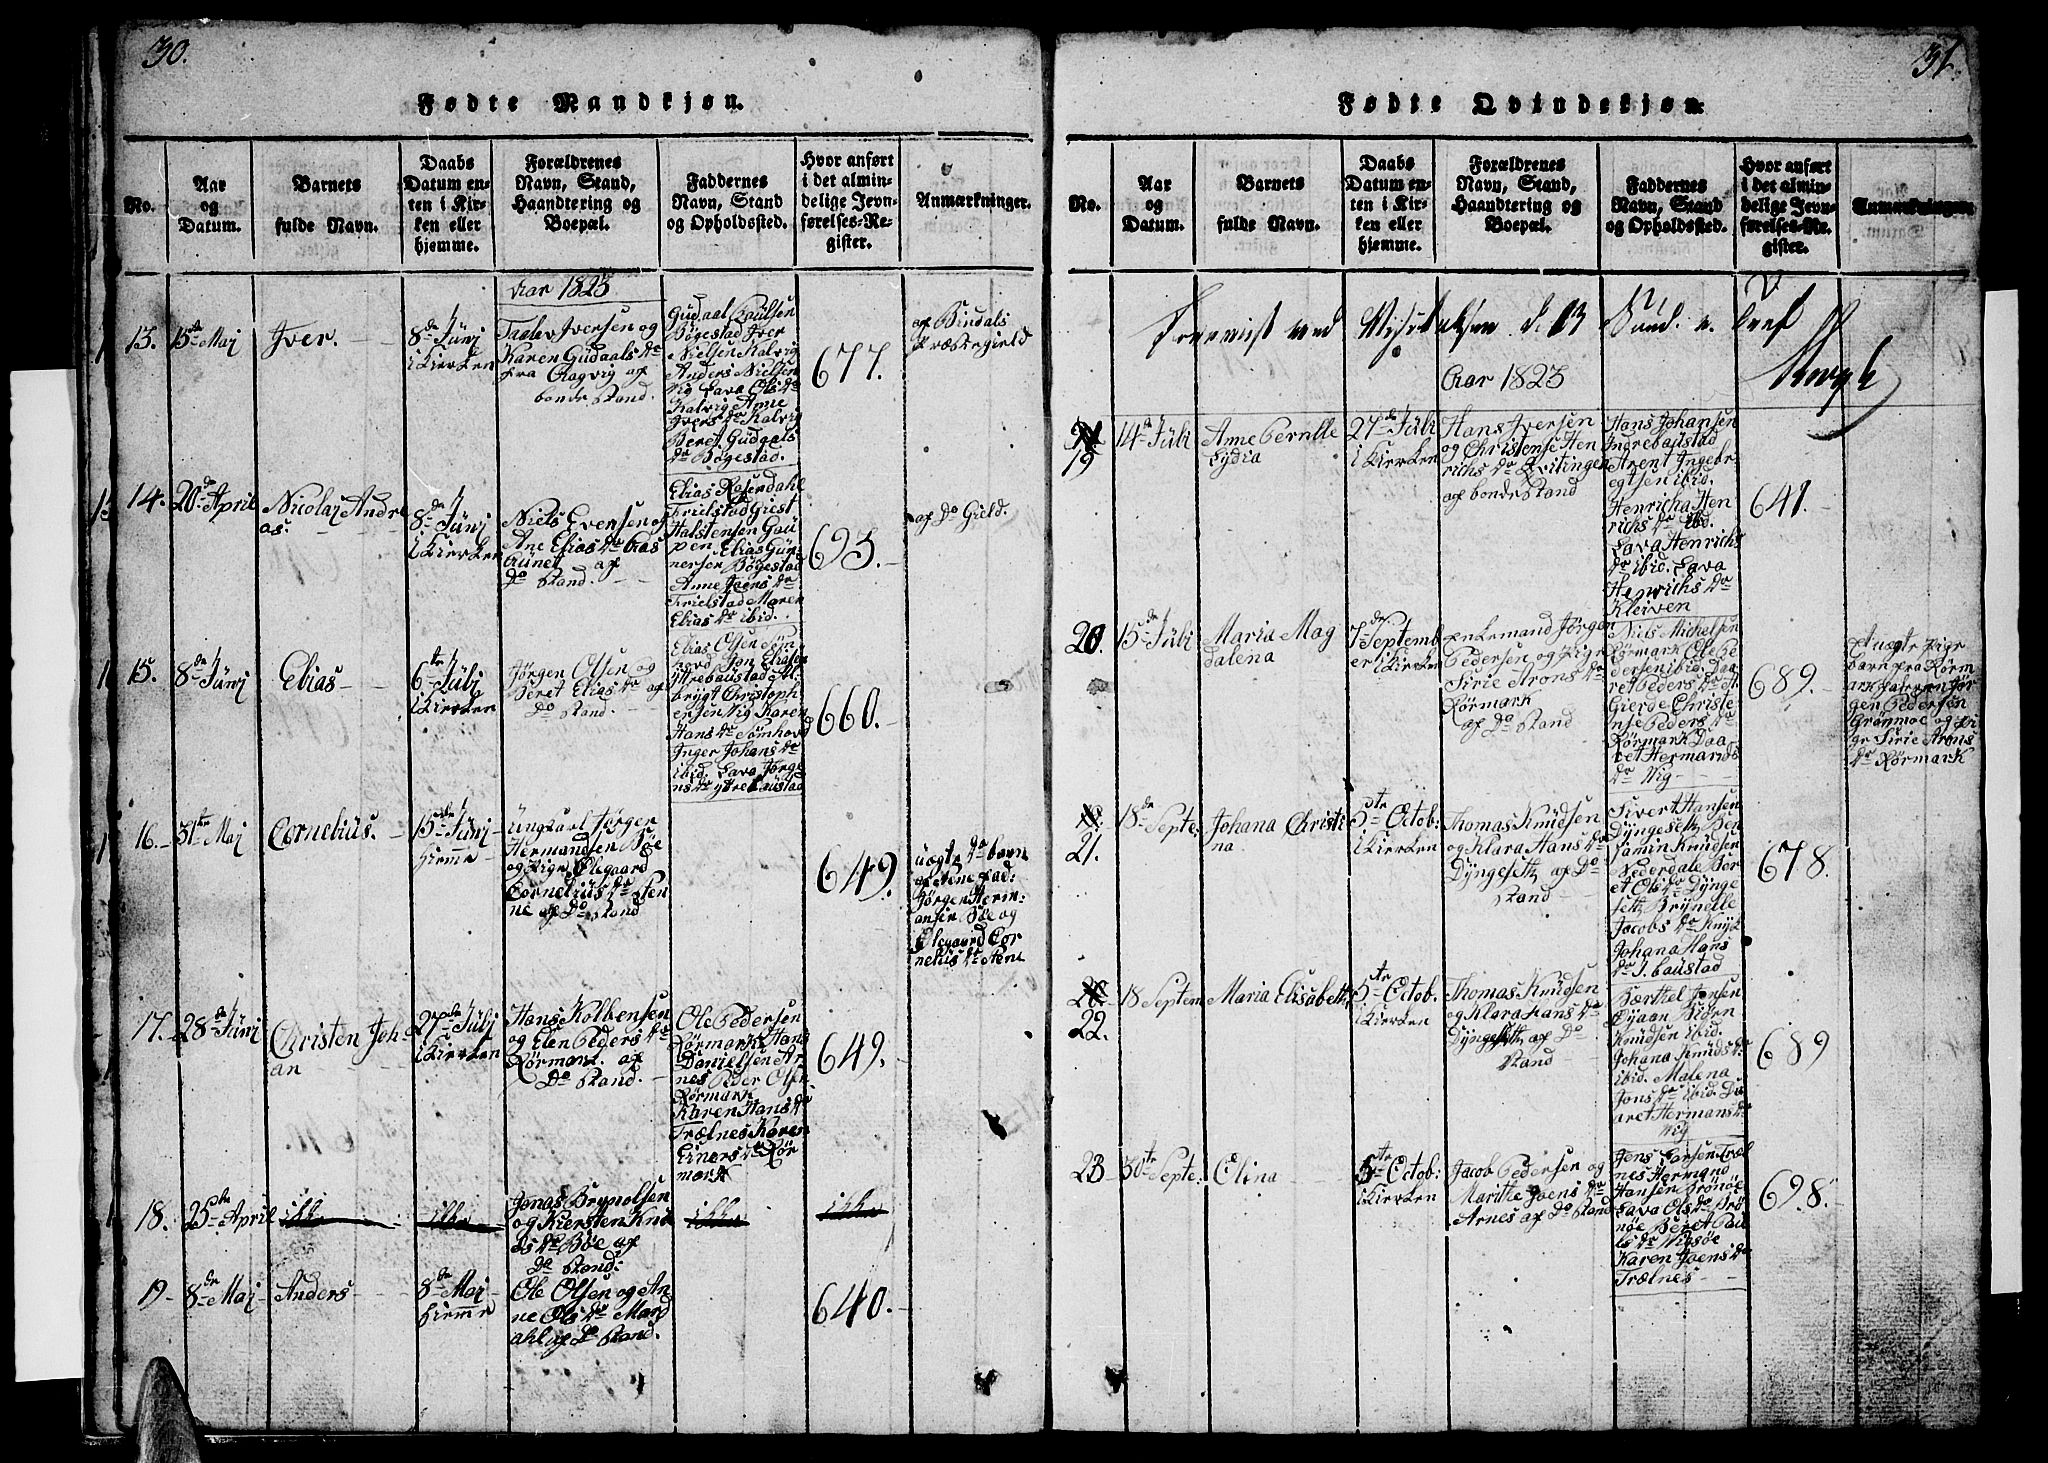 30.
Fødte Mandkjøn.
No.
Aar
og
Datum.
Barnets
fulde Navn.
Daabs
Datum en-
ten i Kir-
ken eller
hjemme.
Forældrenes
Navn, Stand,
Haandtering og
Boepæl.
Faddernes
Navn, Stand
og Opholdssted.
Hvor anført
i det almin-
delige Jevn-
førelses-Re-
gister.
Anmærkninger.
Aar 1823
13.
15de Maj
Iver.
8de Junj
i Kierken
Taalev Iversen og
Karen Gudaals Dr
fra
af
bonde stand.
Gudaal Paulsen
Bøgestad Iver
Nielsen Kalvig
Anders Nielsen
Vig Lava Ols Dr
Kalvig Anne
Ivers Dr Kalvig
Beret Gudaals
Dr Bøgestad.
677.
af Bindals
Præstegield
14.
20de April
Nicolaj Andre
as.
8de Junj
i Kierken
Niels Evensen og
Ane Elias Dr
af
Do Stand.
Elias Rosendahl
Trielstad Giest
Halstensen Gau
pen Elias Gun
nersen Bøgestad
Anne Joens Dr
Trielstad Maren
Elias Dr ibid.
693.
af Do Gield.
15.
8de Junj
Elias
6te Julj
i Kierken
Jørgen Olsen og
Beret Elias Dr af
Do Stand.
Elias Olsen Søm
hovd Jon Eliasen
Yttrebaustad Al
brigt Christoph
ersen Vig Karen
Hans Dr Sømhovd
Inger Johans Dr
ibid. Lava Jørge
ns Dr Yttrebaustad
660.
16.
31te Maj
Cornelius.
15de Junj
hiemme
Ungkarl Jørgen
Hermandsen Bøe
og Pige Olegaard
Cornelius Dr Sten
ne af Do Stand
649.
uægte Do barn
af
Jørgen Herm:
ansen Bøe og
Olegaard Cor
nelius Dr Stene
17.
28de Junj
Christen Joh-
an
27de Julj
i Kierken
Hans Kolbensen
og Elen Peders Dr
Rørmark. af
Do Stand.
Ole Pedersen
Rørmark Hans
Danielsen Ar
nes Peder Olsen
Rørmark
Karen Hans Dr
Trælnes Karen
Einers Dr Rør
mark
649.
18.
25de April
ikke
ikke
Jonas Brynolsen
og Kiersten Knu
ds Dr Bøe af
Do Stand:
ikke
ikke
19
8de Maj
Anders
8de Maj
hiemme
Ole Olsen og An
ne Ols Dr Mar
dahl af Do Stand.
640.
31
Fødte Qvindekjøn.
No.
Aar
og
Datum.
Barnets
fulde Navn.
Daabs
Datum en-
ten i Kir-
ken eller
hjemme.
Forældrenes
Navn, Stand,
Haandtering og
Boepæl.
Faddernes
Navn, Stand
og Opholdssted.
Hvor anført
i det almin-
delige Jevn-
førelses-Re-
gister.
Anmærkninger.
Foreviist ved Visitatsen d. 13
Aar 1823
19
14de Juli
Anne Pernille
Lydia
27de Juli
i Kierken
Hans Iversen
og Christense Hen
richs Dr Qvitingen
af bonde Stand
Hans Johansen
Indrebaustad
Arent Ingebr-
egtsen ibid.
Henricha Hen
richs Dr ibid.
Lava Henrichs
Dr ibid. Lava
Henrichs Dr
Kleiven
641.
20.
15de Juli
Maria Mag
dalena
7de Septemb
er i Kierken
enkemand Jørgen
Pedersen og Pige
Sirie Arons Dr
Rørmark
af Do Stand
Niels Michelsen
Rørmark Ole Pe
dersen ibid. Daa
ret Peders Dr
Gierde Christe
nse Peders Dr
Rørmark Daa
ret Hermands
Dr Vig
689.
Et uægte Pige
barn fra Rørm
ark faderen Jør
gen Pedersen
Grønmoe og Pi
ge Sirie Arons
Dr Rørmark
21.
18de Septe:
Johana Christi
na.
5te Octob:
i Kierken
Thomas Knudsen
og Klara Hans Dr
Dyngeseth af Do
Stand
Sivert Hansen
Dyngeseth Ben
jamin Knudsen
Sederdale Bor
et Ols Dr Dynge
seth Brynelle
Jacobs Dr Knyk
Johana Hans
Dr I. baustad
678.
22.
18 Septem
Maria Elisabeth
5te Octob.
i Kierken
Thomas Knudsen
og Klara Hans Dr
Dyngeseth af Do
Stand
Barthel Jonsen
Øyaan Biørn
Knudsen ibid.
Johana Knuds Dr
ibid. Malena
Jons Dr ibid. Da
aret Hermans Dr
Vig
689
23
30te Septe:
Elina
5te Octob:
i Kierken
Jacob Pedersen og
Marithe Joens Dr
Arnes af Do Stand
Jens Larsen Træl
nes Hermand
Hansen Brønøe
Lava Ols Dr Brø
nøe Beret Pau
ls Dr Vigsøe
Karen Joens Dr
Trælnes
698.